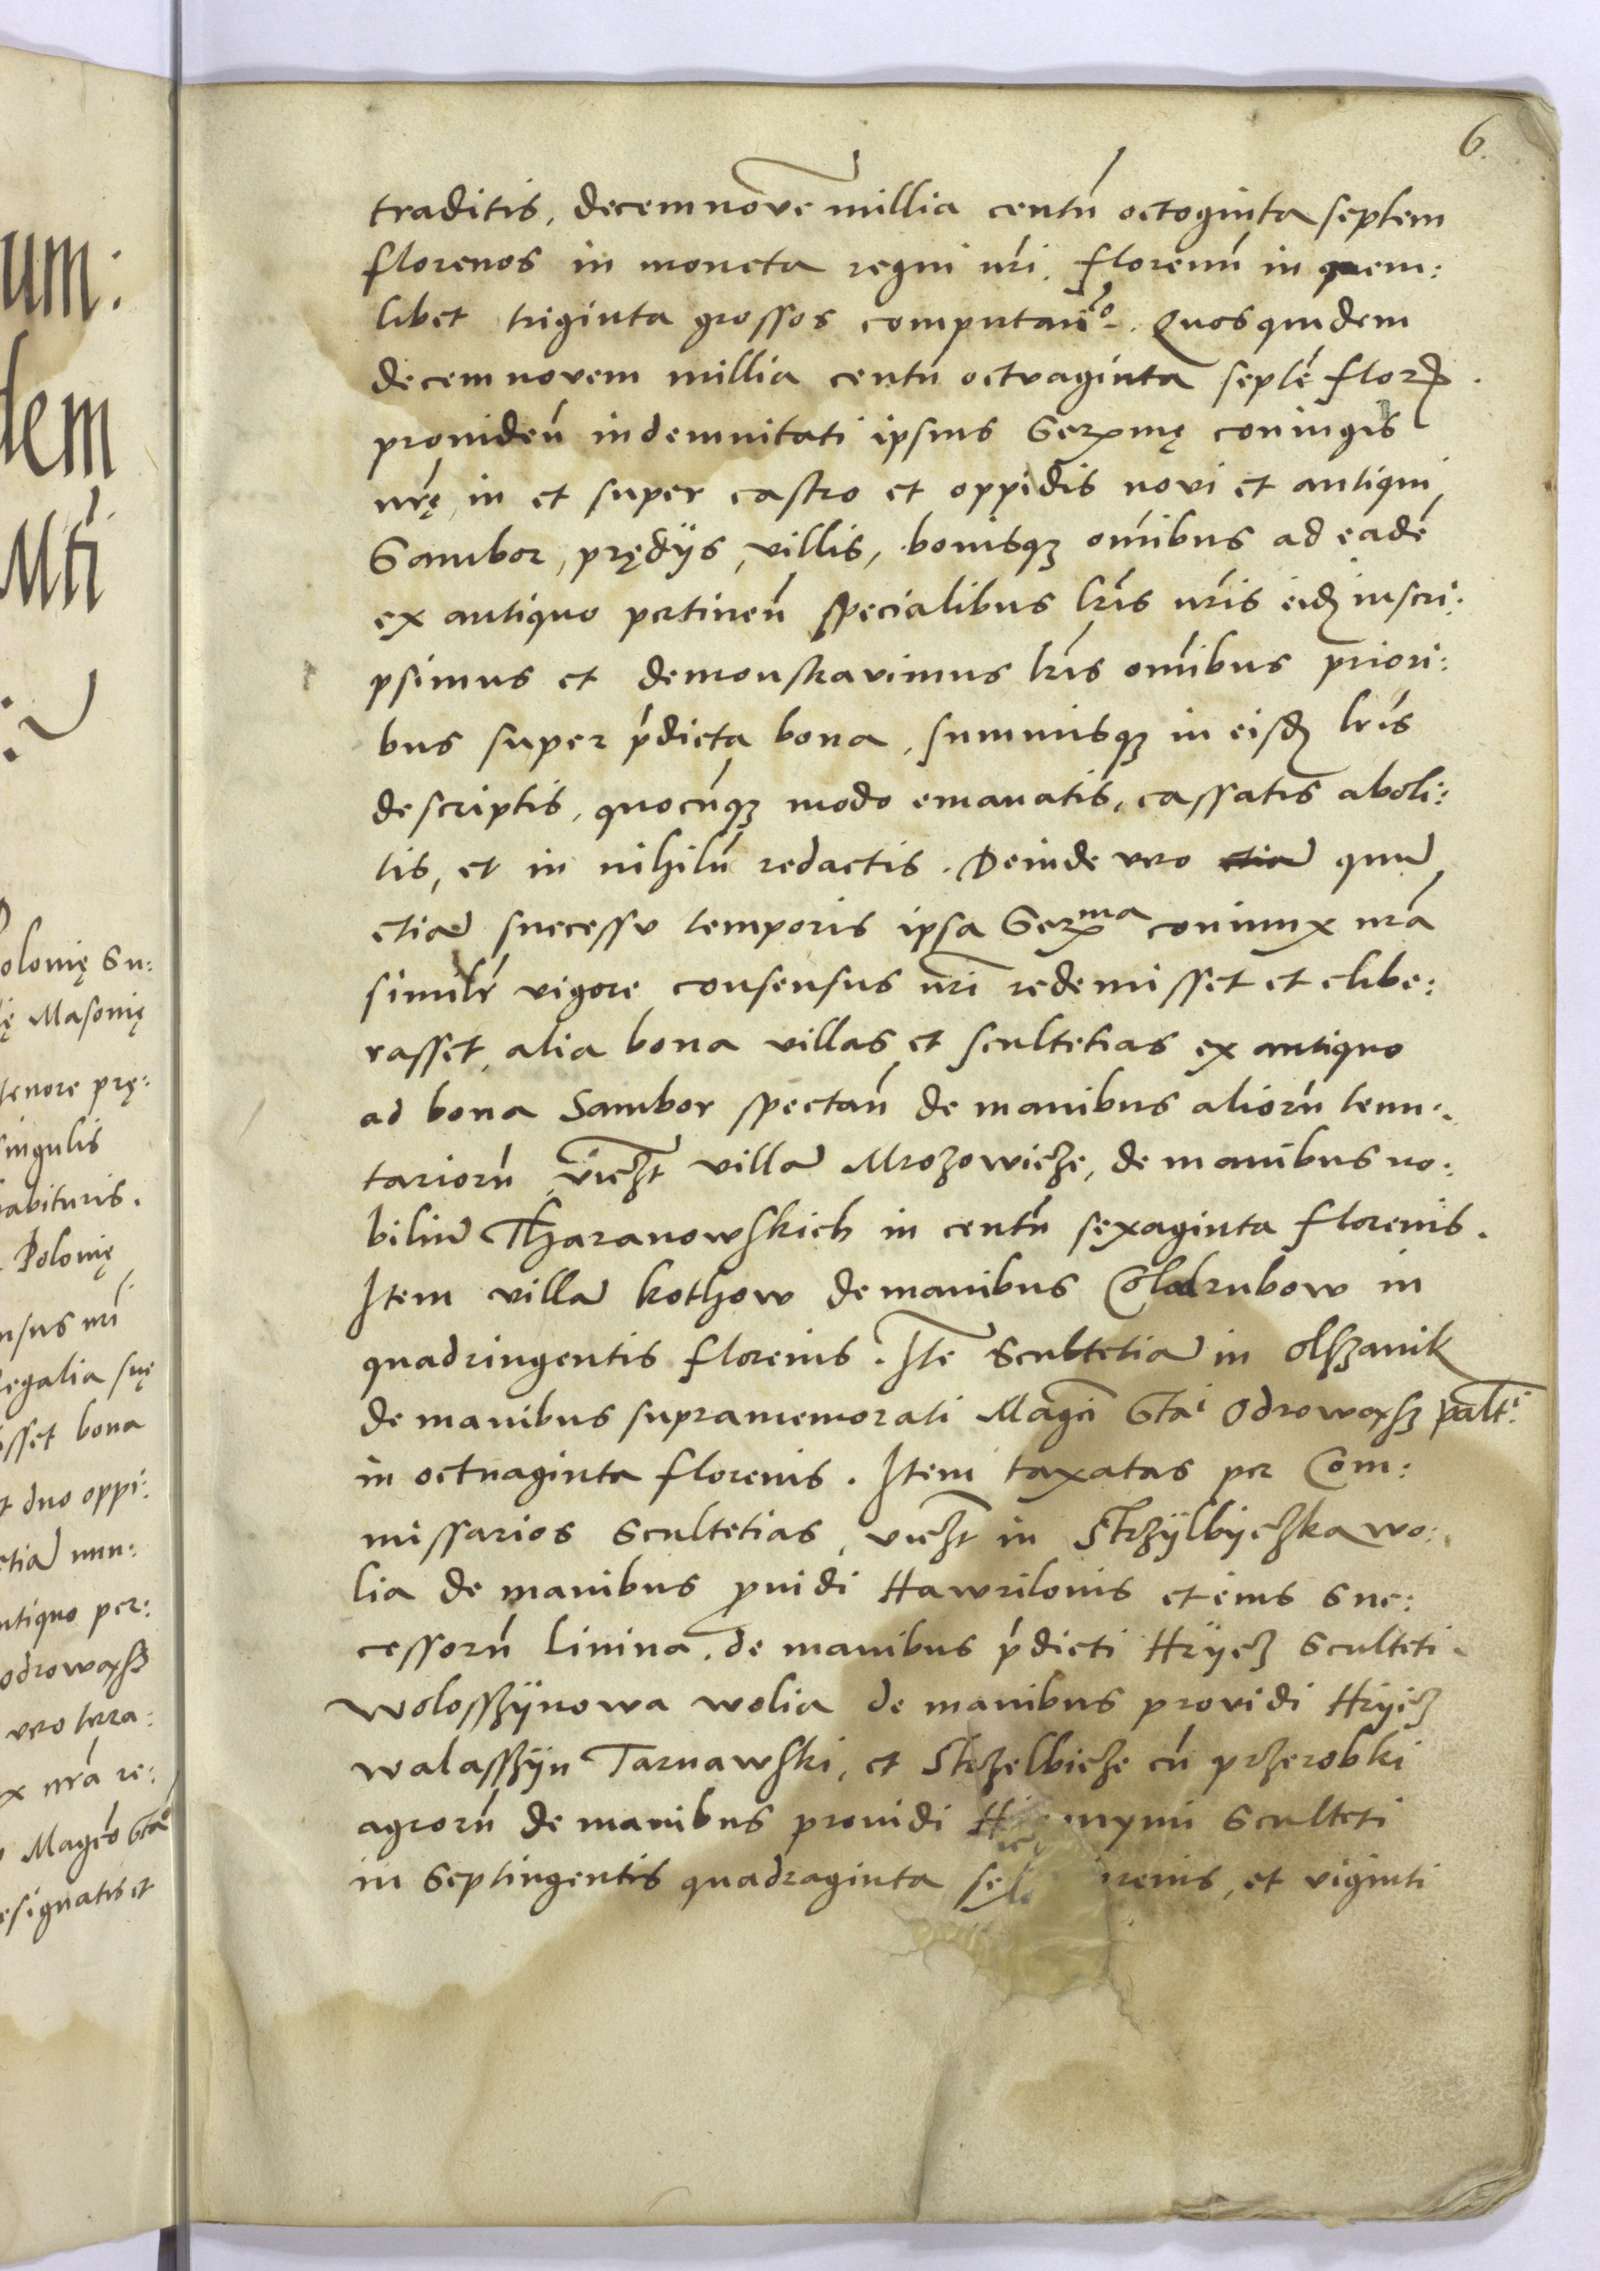 6.
traditis, decemnovē millia centū octoginta septem
florenos in moneta regni nr̄i. florenū in quem:
libet triginta grossos computan̄º. Quos quidem
decem novem millia centū octvaginta septē flor̄.
providen̄ indemnitati ipsius Serx̄mę coniugis
nr̄ę, in et super castro et oppidis novi et antiqui
Sambor, prędijs, villis, bonisqȝ om̄ibus ad eadē
ex antiquo pertinen̄ specialibus lr̄is nr̄is eid̄ inscri:
psimus et demonstravimus lr̄is om̄ibus priori:
bus super p̄dicta bona, summisqȝ in eisd̄ lr̄is
descriptis, quocūqȝ modo emanatis, cassatis aboli:
tis, et in nihilū redactis. Deinde vero etiā quū
etiā successu temporis ipsa Serx̄ma coniunx nr̄a
similr̄ vigore consensus nr̄i redemisset et elibe:
rasset, alia bona villas et scultetias ex antiquo
ad bona Sambor spectan̄ de manibus aliorū tenu:
tariorū, viczt̄ villā Mrozowicze, de manibus no:
biliū Tharanowskich in centū sexaginta florenis.
Item villā kothow de manibus Choldrubow in
quadringentis florenis. Itē Scultetiā in Olszanik
de manibus supramemorati Magci Stai Odrowąsz palti:
in octuaginta florenis. Item taxatas per Com:
missarios Scultetias, viczt̄ in Strzÿlbÿczka wo:
lia de manibus pvidi Hawrilonis et eius Suc:
cessorū Linina, de manibus p̄dicti Hrÿcz Sculteti.
Wolosszÿnowa wolia de manibus providi Hrÿcz
walasszÿn Tarnawski, et Strzelbicze cū przerobki
agrorū de manibus providi Sculteti
in Septingentis quadraginta et viginti
um:
dem
Mti
olonię Su:
ę Masonię
tenore prę:
singulis
abituris.
Polonię
nsus nr̄i
egalia suę
sset bona
t duo oppi:
etiā nun:
ntiquo per:
odrowąsz
vero terra:
x nr̄a re:
Magco Stao
esignatis et